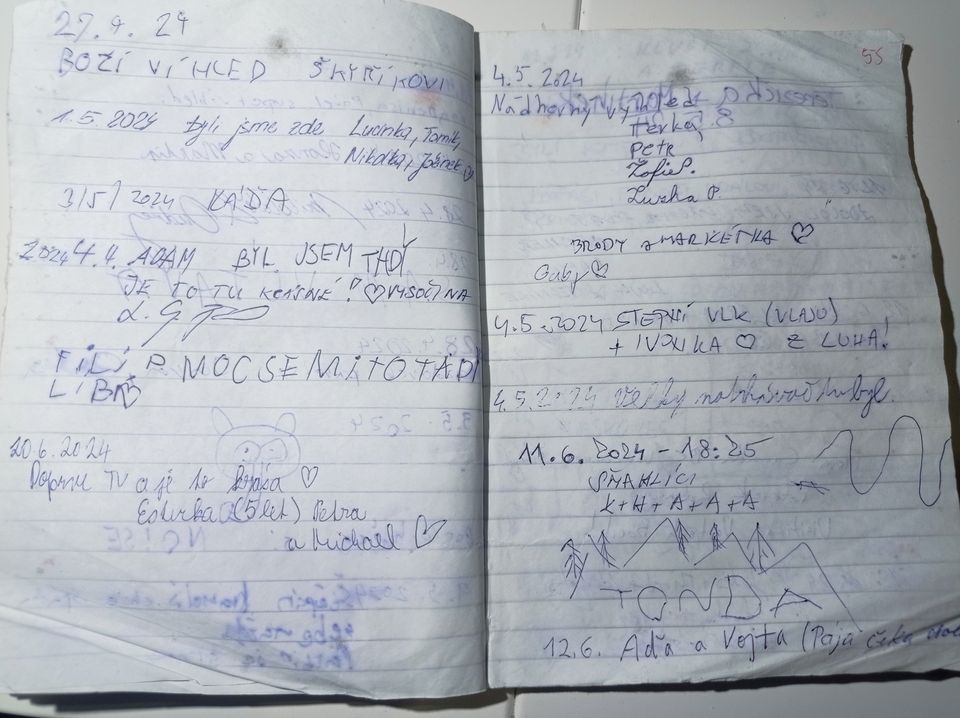 27.4.24
BOŽÍ VÍHLED ŠKYŘÍKOVI
1.5.2024 byli jsme zde Lucinka, Tomík,
Nikolka,
3/5/2024 KÁĎA
2024 4.4. ADAM BYL JSEM TADY
JE TO TU KRÁSNÉ! ♡ VYSOČINA
P MOC SE MI TO TADI
LÍBÍ
20.6.2024
TV a je to ♡
Esterka (5 let) Petra
a Michael ♡
55
4.5.2024
Nádherný výhled
Petr
Žofie P.
Zuzka P.
BRODY a MARKÉTKA ♡
Gaby ♡
4.5.2024 STEPNÍ VLK (VLAĎO)
+ IVONKA ♡ Z LUHA!
4.5.2024 Velký
11.6.2024 - 18:25
SŇAHLÍCI
K+H+A+A+A
TONDA
12.6. Aďa a Vojta (Pája čeká